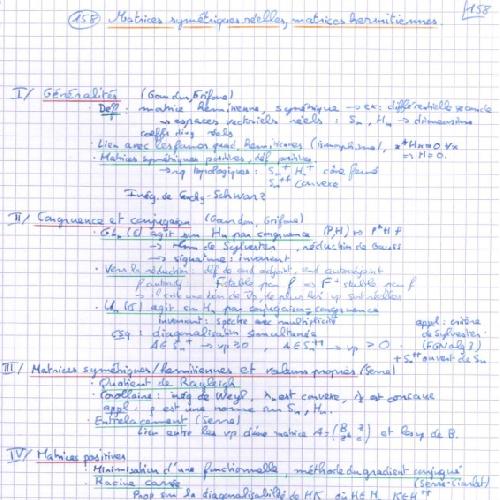 158
(158) Matrices symétriques réelles, matrices hermitiennes.
I/ Généralités (Gourdon, Grifone)
Déf: matrice hermitienne, symétrique → ex: différentielle seconde
→ espaces vectoriels réels: Sn, Hn → dimensions
coeffs diag réels
• Lien avec les formes quad, hermitiennes (isomorphisme), x*Hx=0 ∀x
⇒ H=0.
• Matrices symétriques positives, déf positives.
→ topologiques: Sn+ Hn+ cône fermé
Sn++ convexe
Inég. de Cauchy-Schwarz?
II/ Congruence et conjugaison (Gourdon, Grifone)
• GLn(C) agit sur Hn par congruence (P,H) ↦ P*HP
→ thm de Sylvester, réduction de Gauss
→ signature: invariant
• Vers la réduction: déf de end adjoint, end autoadjoint
f autoadj F stable par f ⇒ F⊥ stable par f
→ il existe une de vp, de plus les vp sont réelles
• Un(C) agit sur Hn par conjugaison-congruence
invariant: spectre avec multiplicité
CSQ: diagonalisation simultanée
A∈Sn+ → vp ≥0, A∈Sn++ → vp >0
appl: critère
de Sylvester
+ Sn++ ouvert de Sn
III/ Matrices symétriques/hermitiennes et valeurs propres (Serre)
• Quotient de Rayleigh
• Corollaire: inég de Weyl, λn est convexe, λ1 est concave
appl: ρ est une norme sur Sn, Hn.
• Entrelacement (Serre)
Lien entre les vp d'une matrice A= et les vp de B.
IV/ Matrices positives
Minimisation d'une fonctionnelle, méthode du gradient conjugué
(Serre-Ciarlet)
Racine carrée
Prop sur la diagonalisabilité de HK où H∈H K∈H+